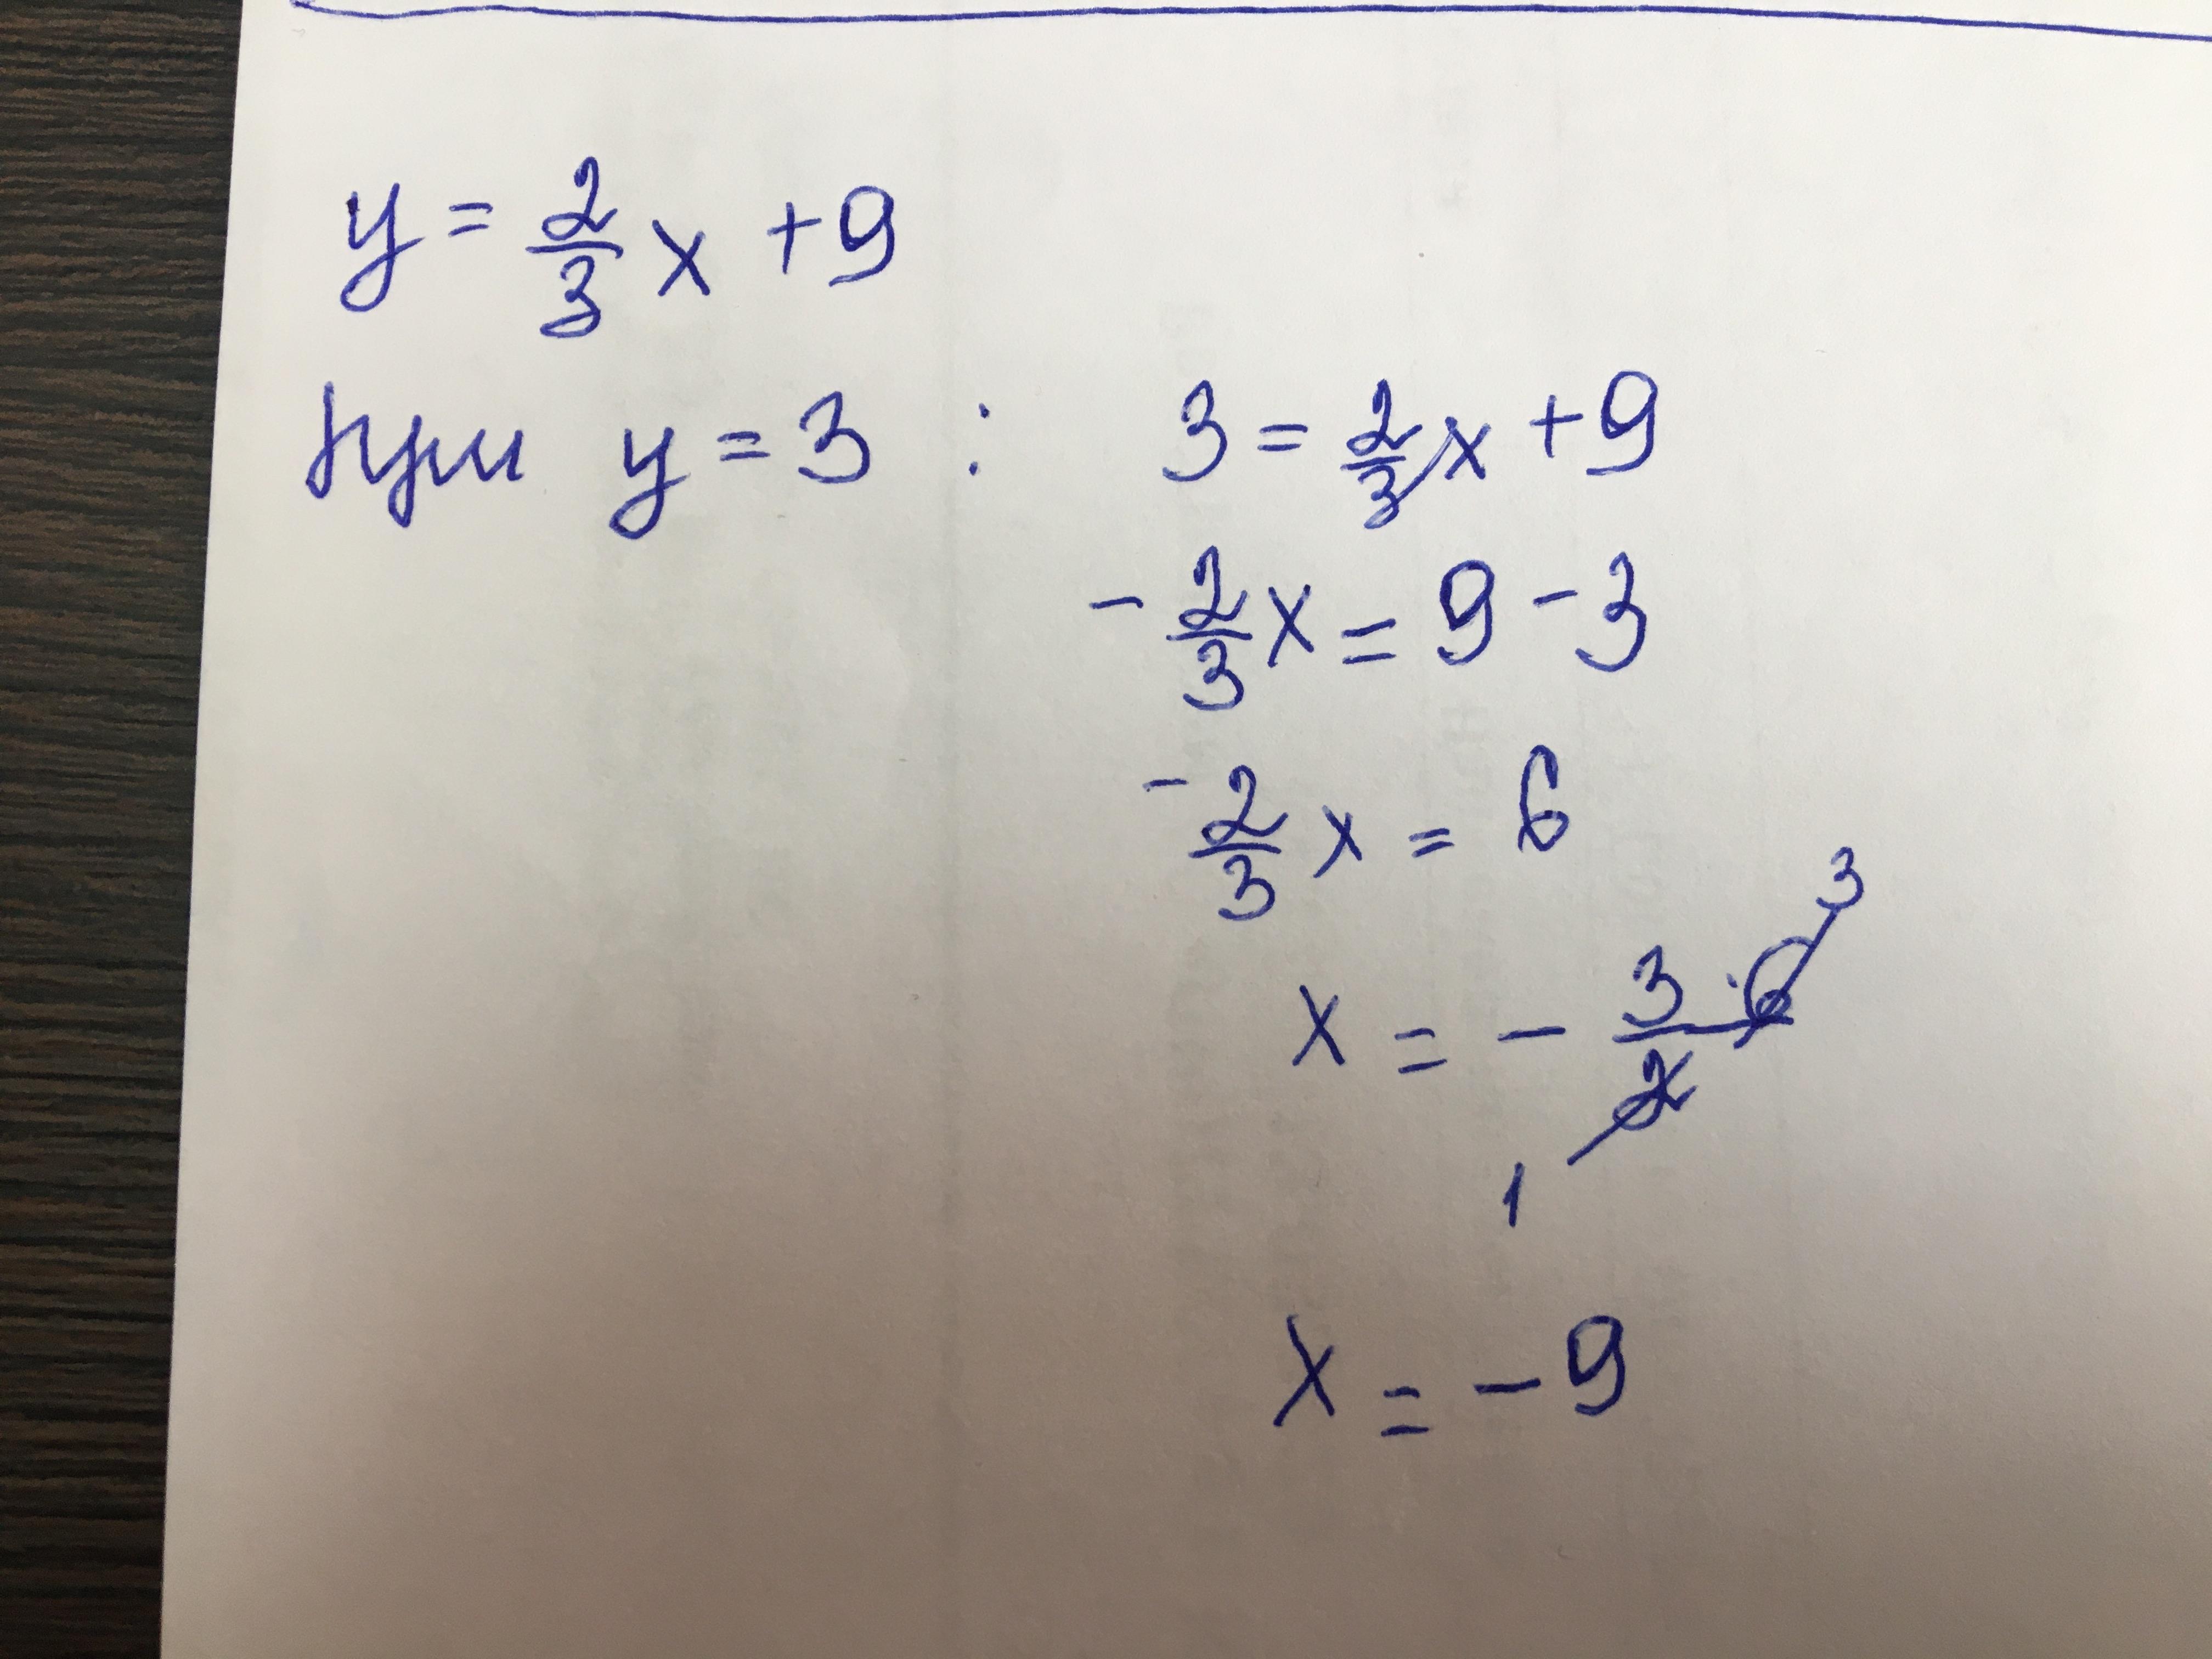 y = 2/3 x + 9
при y = 3 : 3 = 2/3 x + 9
- 2/3 x = 9 - 3
- 2/3 x = 6
3
x = - 3 · 6 / 2
1
x = - 9